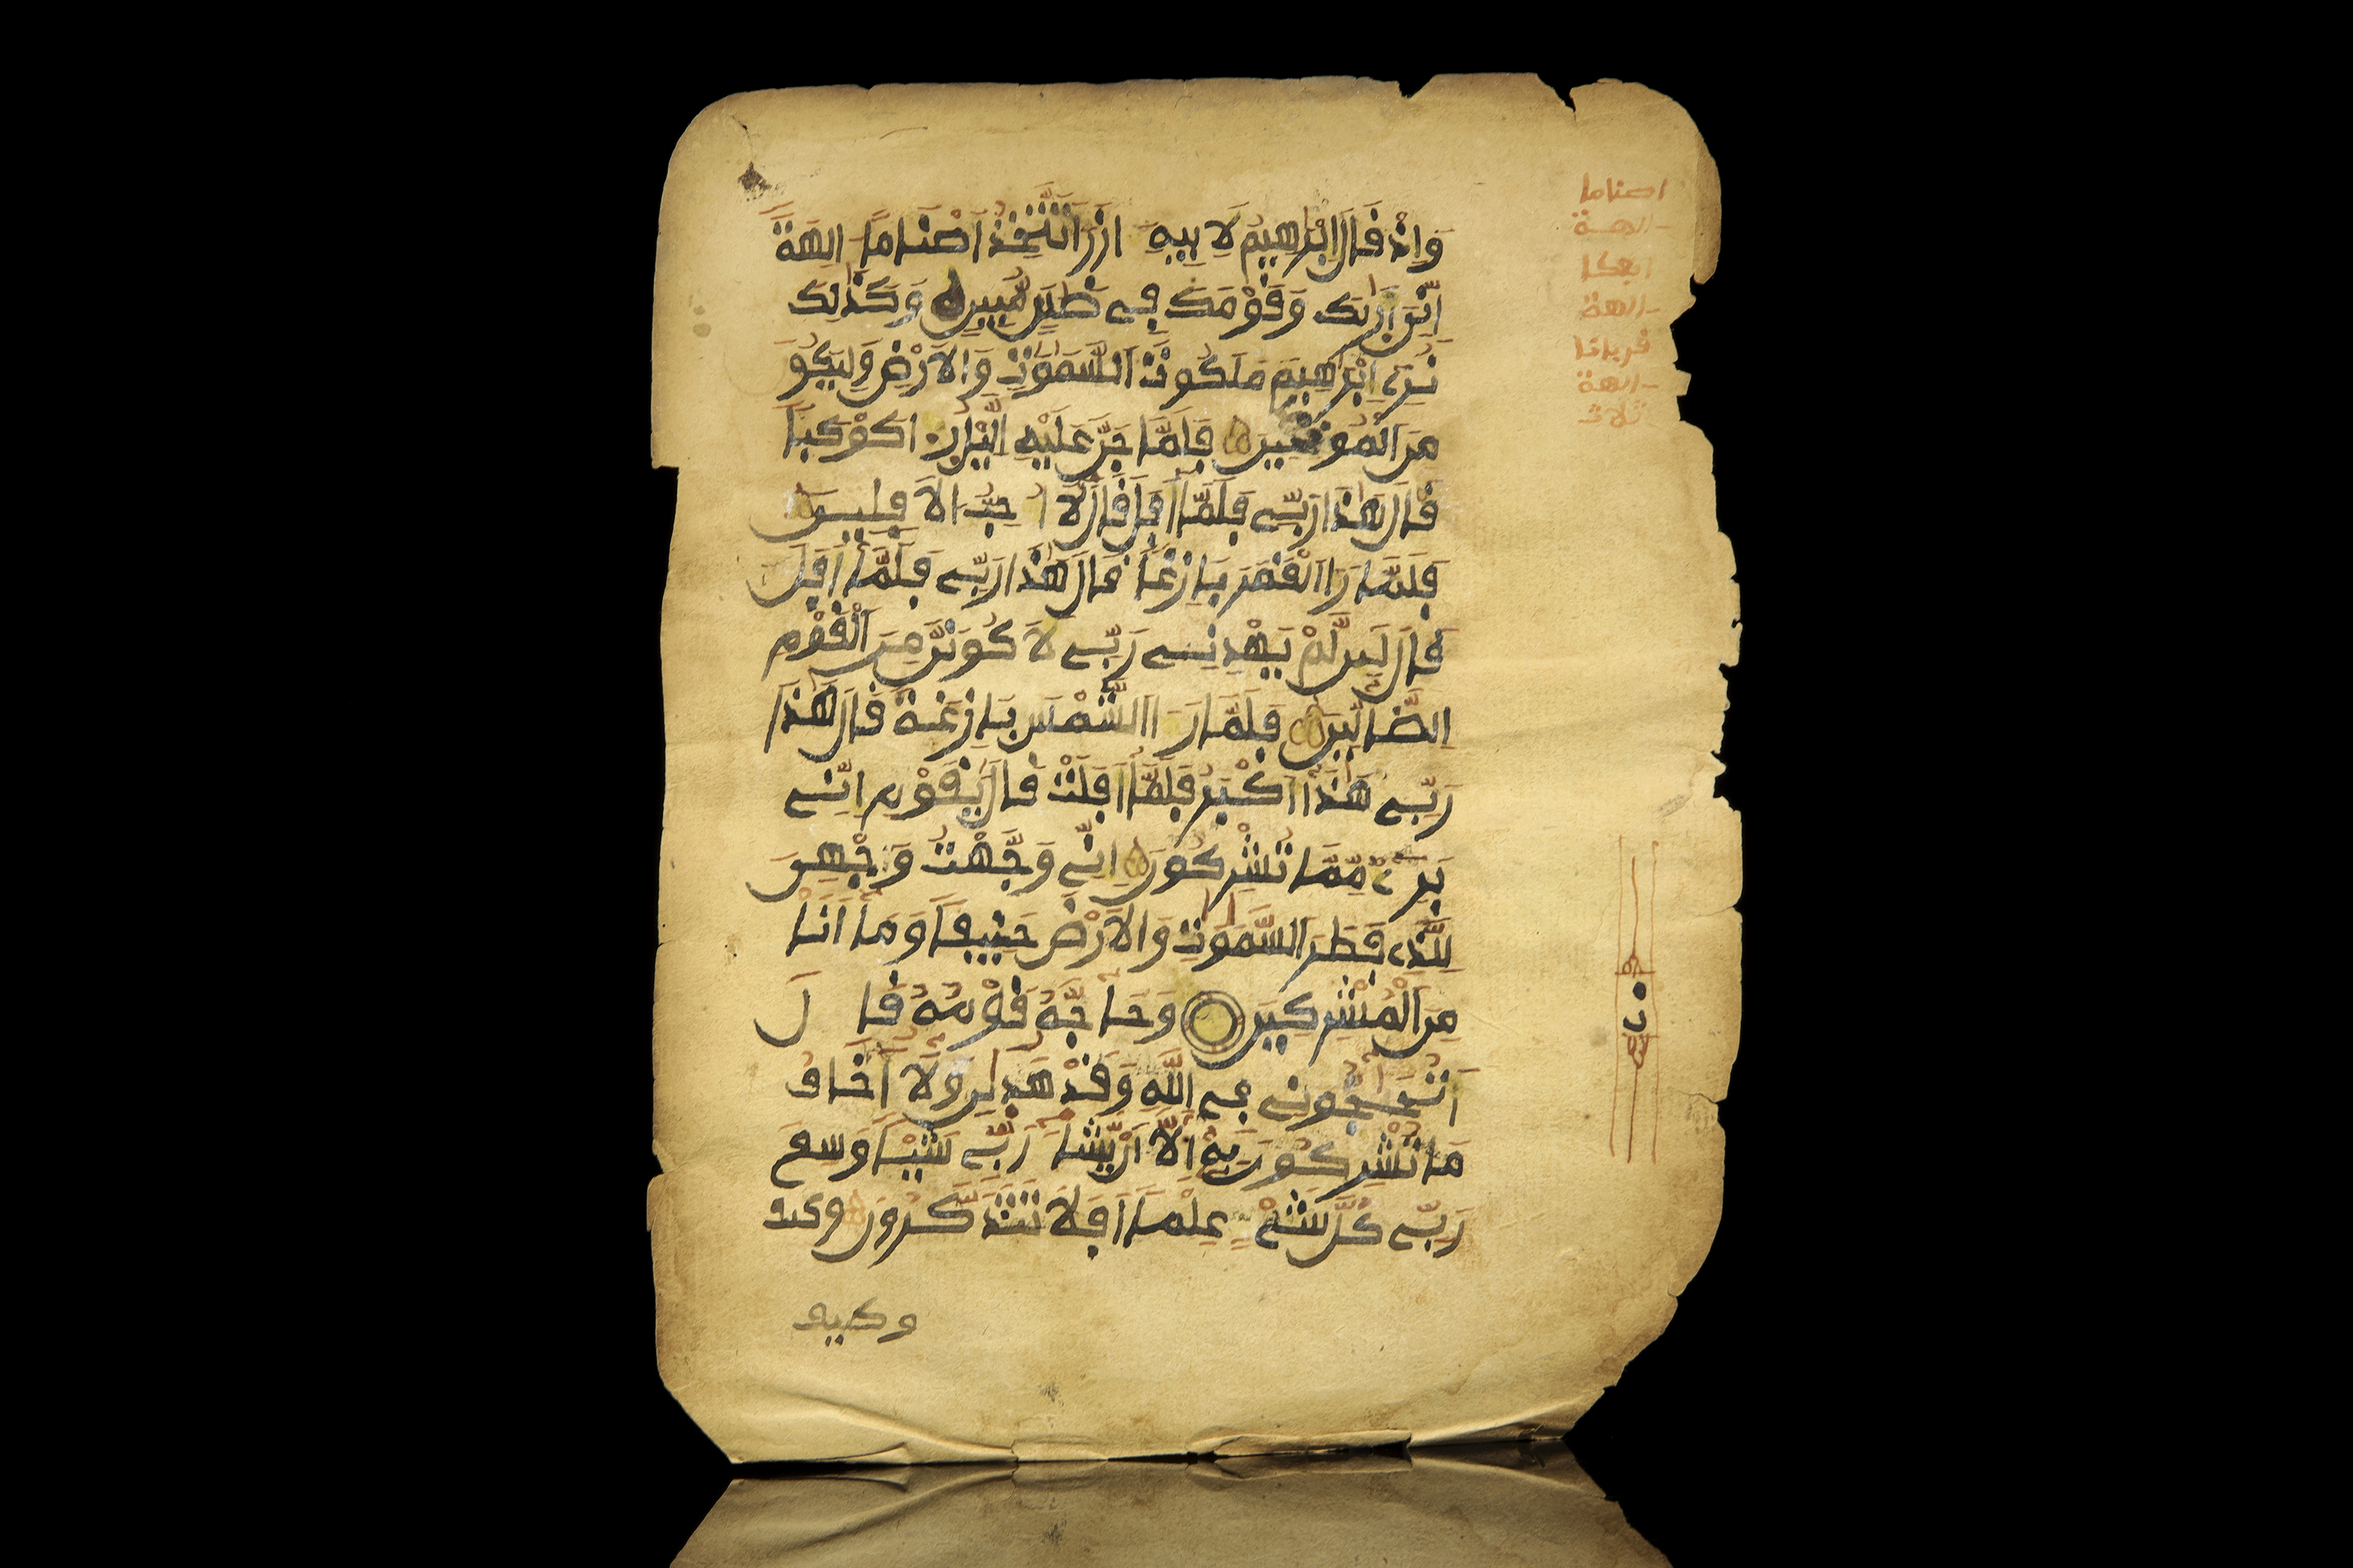 وَإِذْ قَالَ إِبْرَهِيمُ لِأَبِيهِ ازَرَ أَتَتَّخِذُ أَصْنَامًا الِهَةً
إِنِّيَ أَرَيكَ وَقَوْمَكَ فِي ضَلَلٍ مُّبِينٍ وَكَذَلِكَ
نُرِي إِبْرَهِيمَ مَلَكُوتَ السَّمَوَتِ وَالَارْضِ وَلِيَكُو
مِنَ الْمُوقِنِينَ فَلَمَّا جَنَّ عَلَيْهِ الَّيْلُ رَا كَوْكَبًا
قَالَ هَذَا رَبِّي فَلَمَّا أَفَلَ قَالَ لَا أُحِبُّ الَافِلِينَ
فَلَمَّا رَا الْقَمَرَ بَازِغًا قَالَ هَذَا رَبِّي فَلَمَّا أَفَلَ
قَالَ لَيِن لَّمْ يَهْدِنِي رَبِّي لَأَكُونَنَّ مِنَ الْقَوْمِ
الضَّالِّينَ فَلَمَّا رَا الشَّمْسَ بَازِغَةً قَالَ هَذَا
رَبِّي هَذَا أَكْبَرُ فَلَمَّا أَفَلَتْ قَالَ يَقَوْمِ إِنِّي
بَرِيءٌ مِّمَّا تُشْرِكُونَ إِنِّي وَجَّهْتُ وَجْهِيَ
لِلَّذِي فَطَرَ السَّمَوَتِ وَالَارْضَ حَنِيفًا وَمَا أَنَا
مِنَ الْمُشْرِكِينَ وَحَاجَّهُ قَوْمُهُ قَالَ
أَتُحَجُّونِي فِي اللَّهِ وَقَدْ هَدَينِ وَلَا أَخَافُ
مَا تُشْرِكُونَ بِهِ إِلَّا أَن يَّشَاءَ رَبِّي شَيْئًا وَسِعَ
رَبِّي كُلَّ شَيْءٍ عِلْمًا أَفَلَا تَتَذَكَّرُونَ وكيف
وكيف
اصناما
الهة
ايفكا
الهة
قربانا
الهة
ثلاث